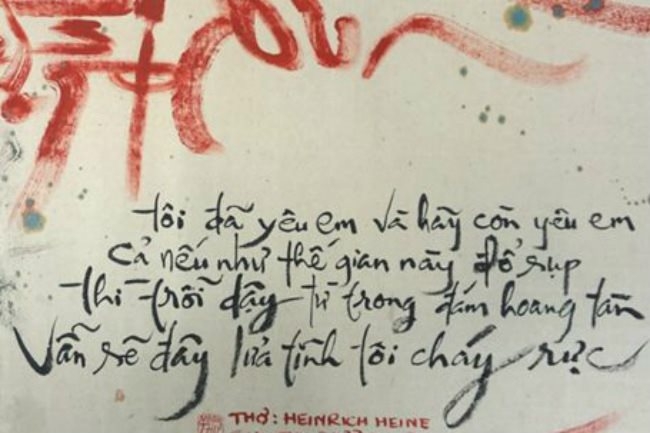 tôi đã yêu em và hãy còn yêu em
cả nếu như thế gian này đổ sụp
thì trỗi dậy từ trong đám hoang tàn
Vẫn sẽ đầy lửa tình tôi cháy rực
THƠ: HEINRICH HEINE